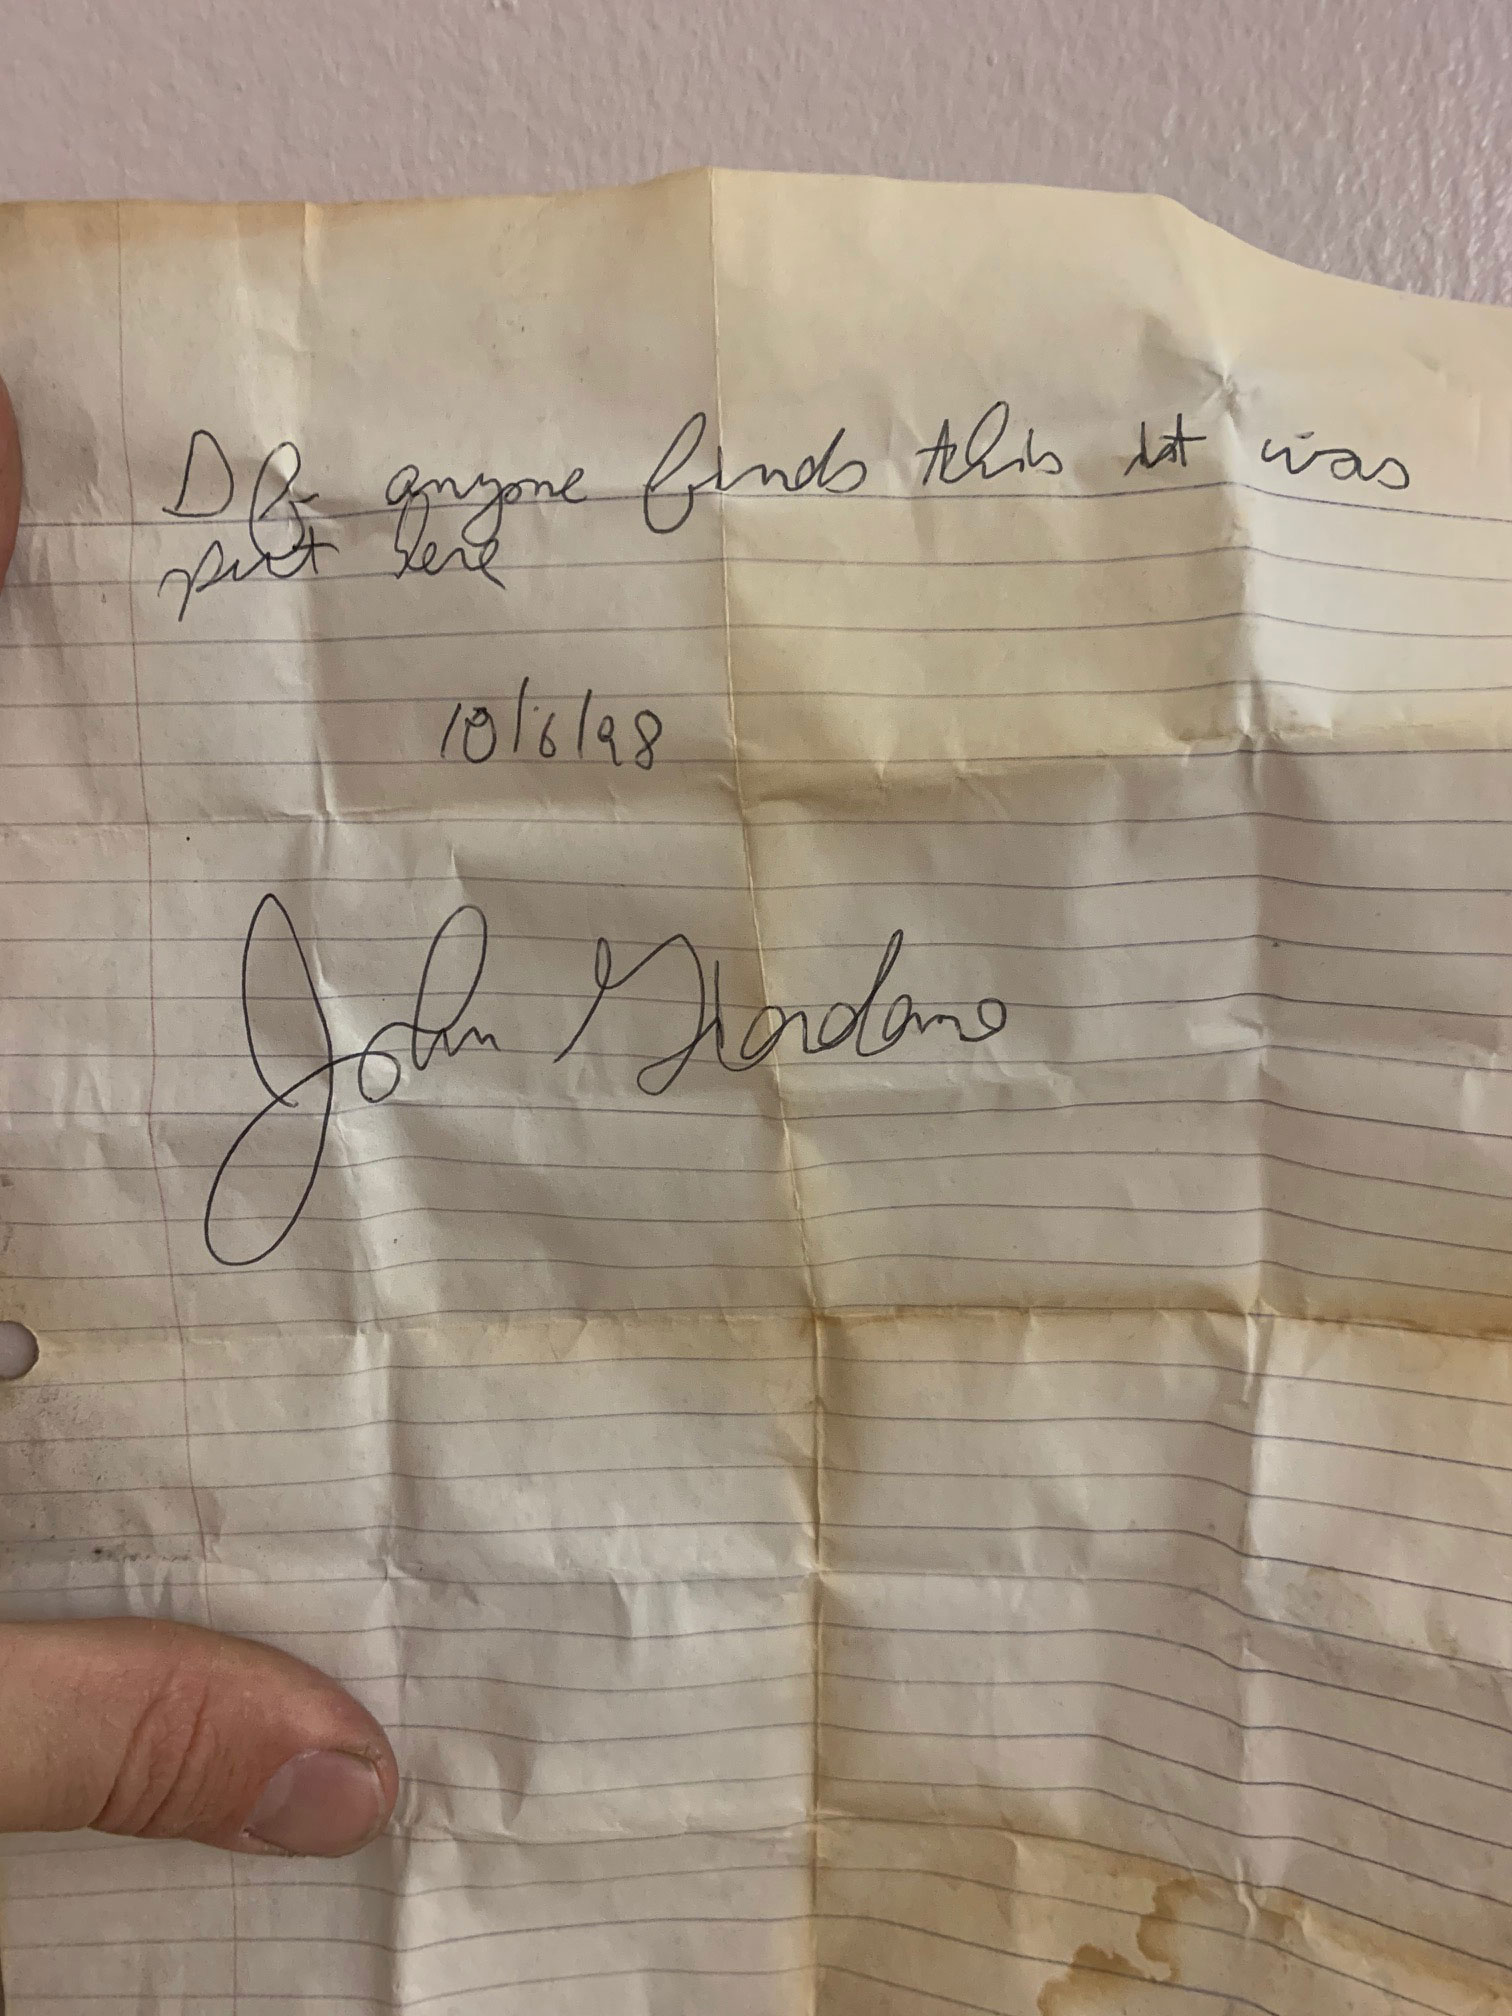 If anyone finds this it was
put here
10/6/98
John Giordano